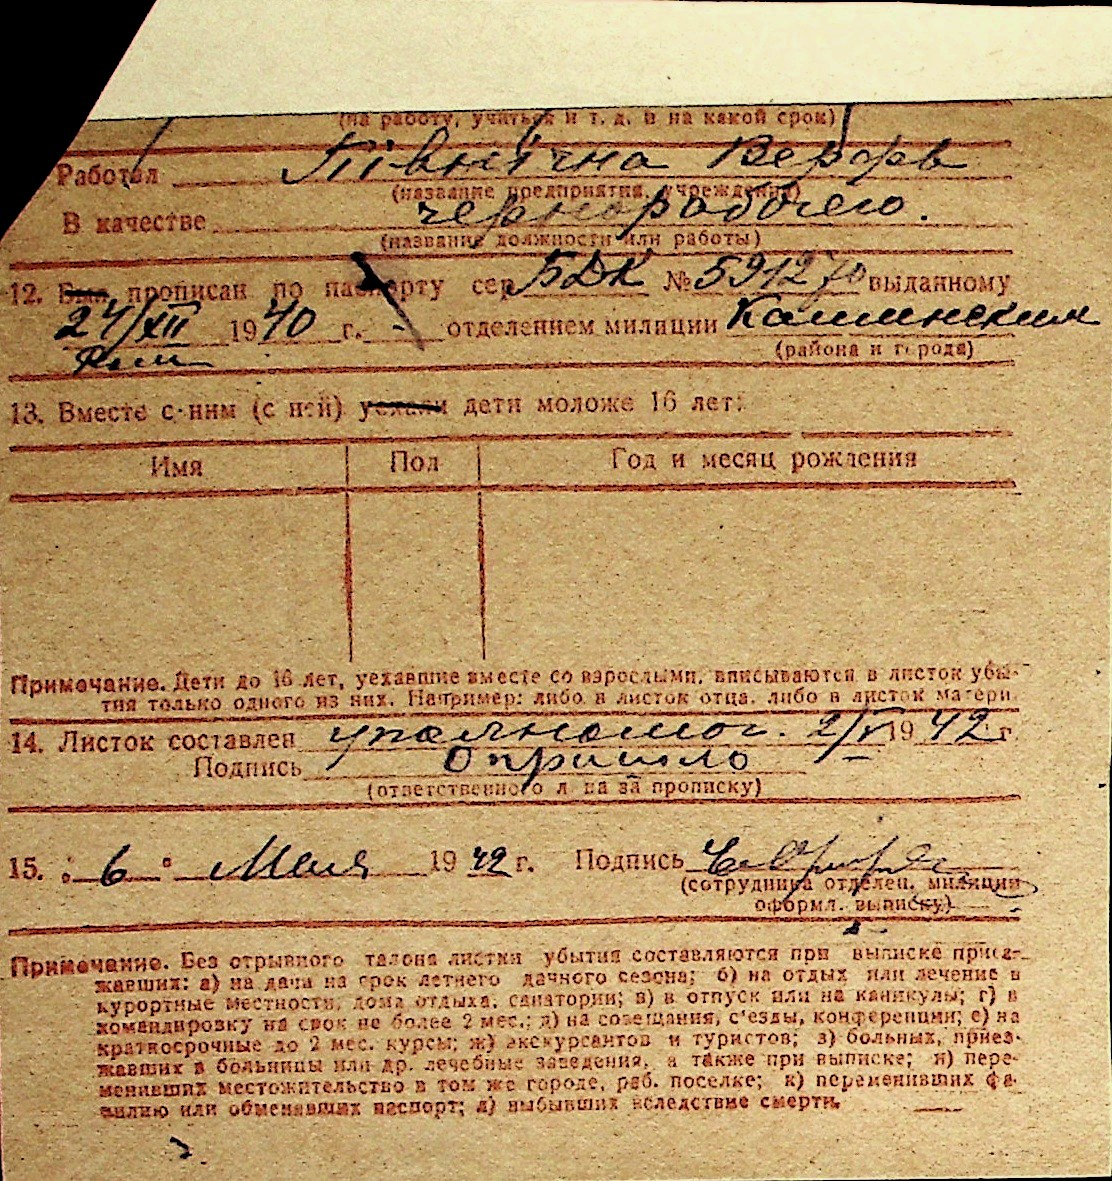 (на работу, учиться и т. д. и на какой срок)
Работал Північна Верфь
(название предприятия, учреждения)
В качестве чернорабочего.
(название должности или работы)
12. Был прописан по паспорту сер. БДК № 591270 выданному
24/XII 1940 г. - отделением милиции
(района и города)
13. Вместе с ним (с ней) уехали дети моложе 16 лет:
Имя Пол Год и месяц рождения
Примечание. Дети до 16 лет, уехавшие вместе со взрослыми, вписываются в листок убы-
тия только одного из них. Например: либо в листок отца, либо в листок матери
14. Листок составлен 2/V 1942 г
Подпись
(ответственного л ца за прописку)
15. "6" Мая 1942 г. Подпись
(сотрудника отделен. милиции
оформл. выписку)
Примечание. Без отрывного талона листки убытия составляются при выписке приез-
жавших: а) на дачи на срок летнего дачного сезона; б) на отдых или лечение в
курортные местности, дома отдыха, санатории; в) в отпуск или на каникулы; г) в
командировку на срок не более 2 мес.; д) на совещания, с'езды, конференции; е) на
краткосрочные до 2 мес. курсы; ж) экскурсантов и туристов; з) больных, приез-
жавших в больницы или др. лечебные заведения, а также при выписке; и) пере-
менивших местожительство в том же городе, раб. поселке; к) переменивших фа-
милию или обменявших паспорт; л) выбывших вследствие смерти.